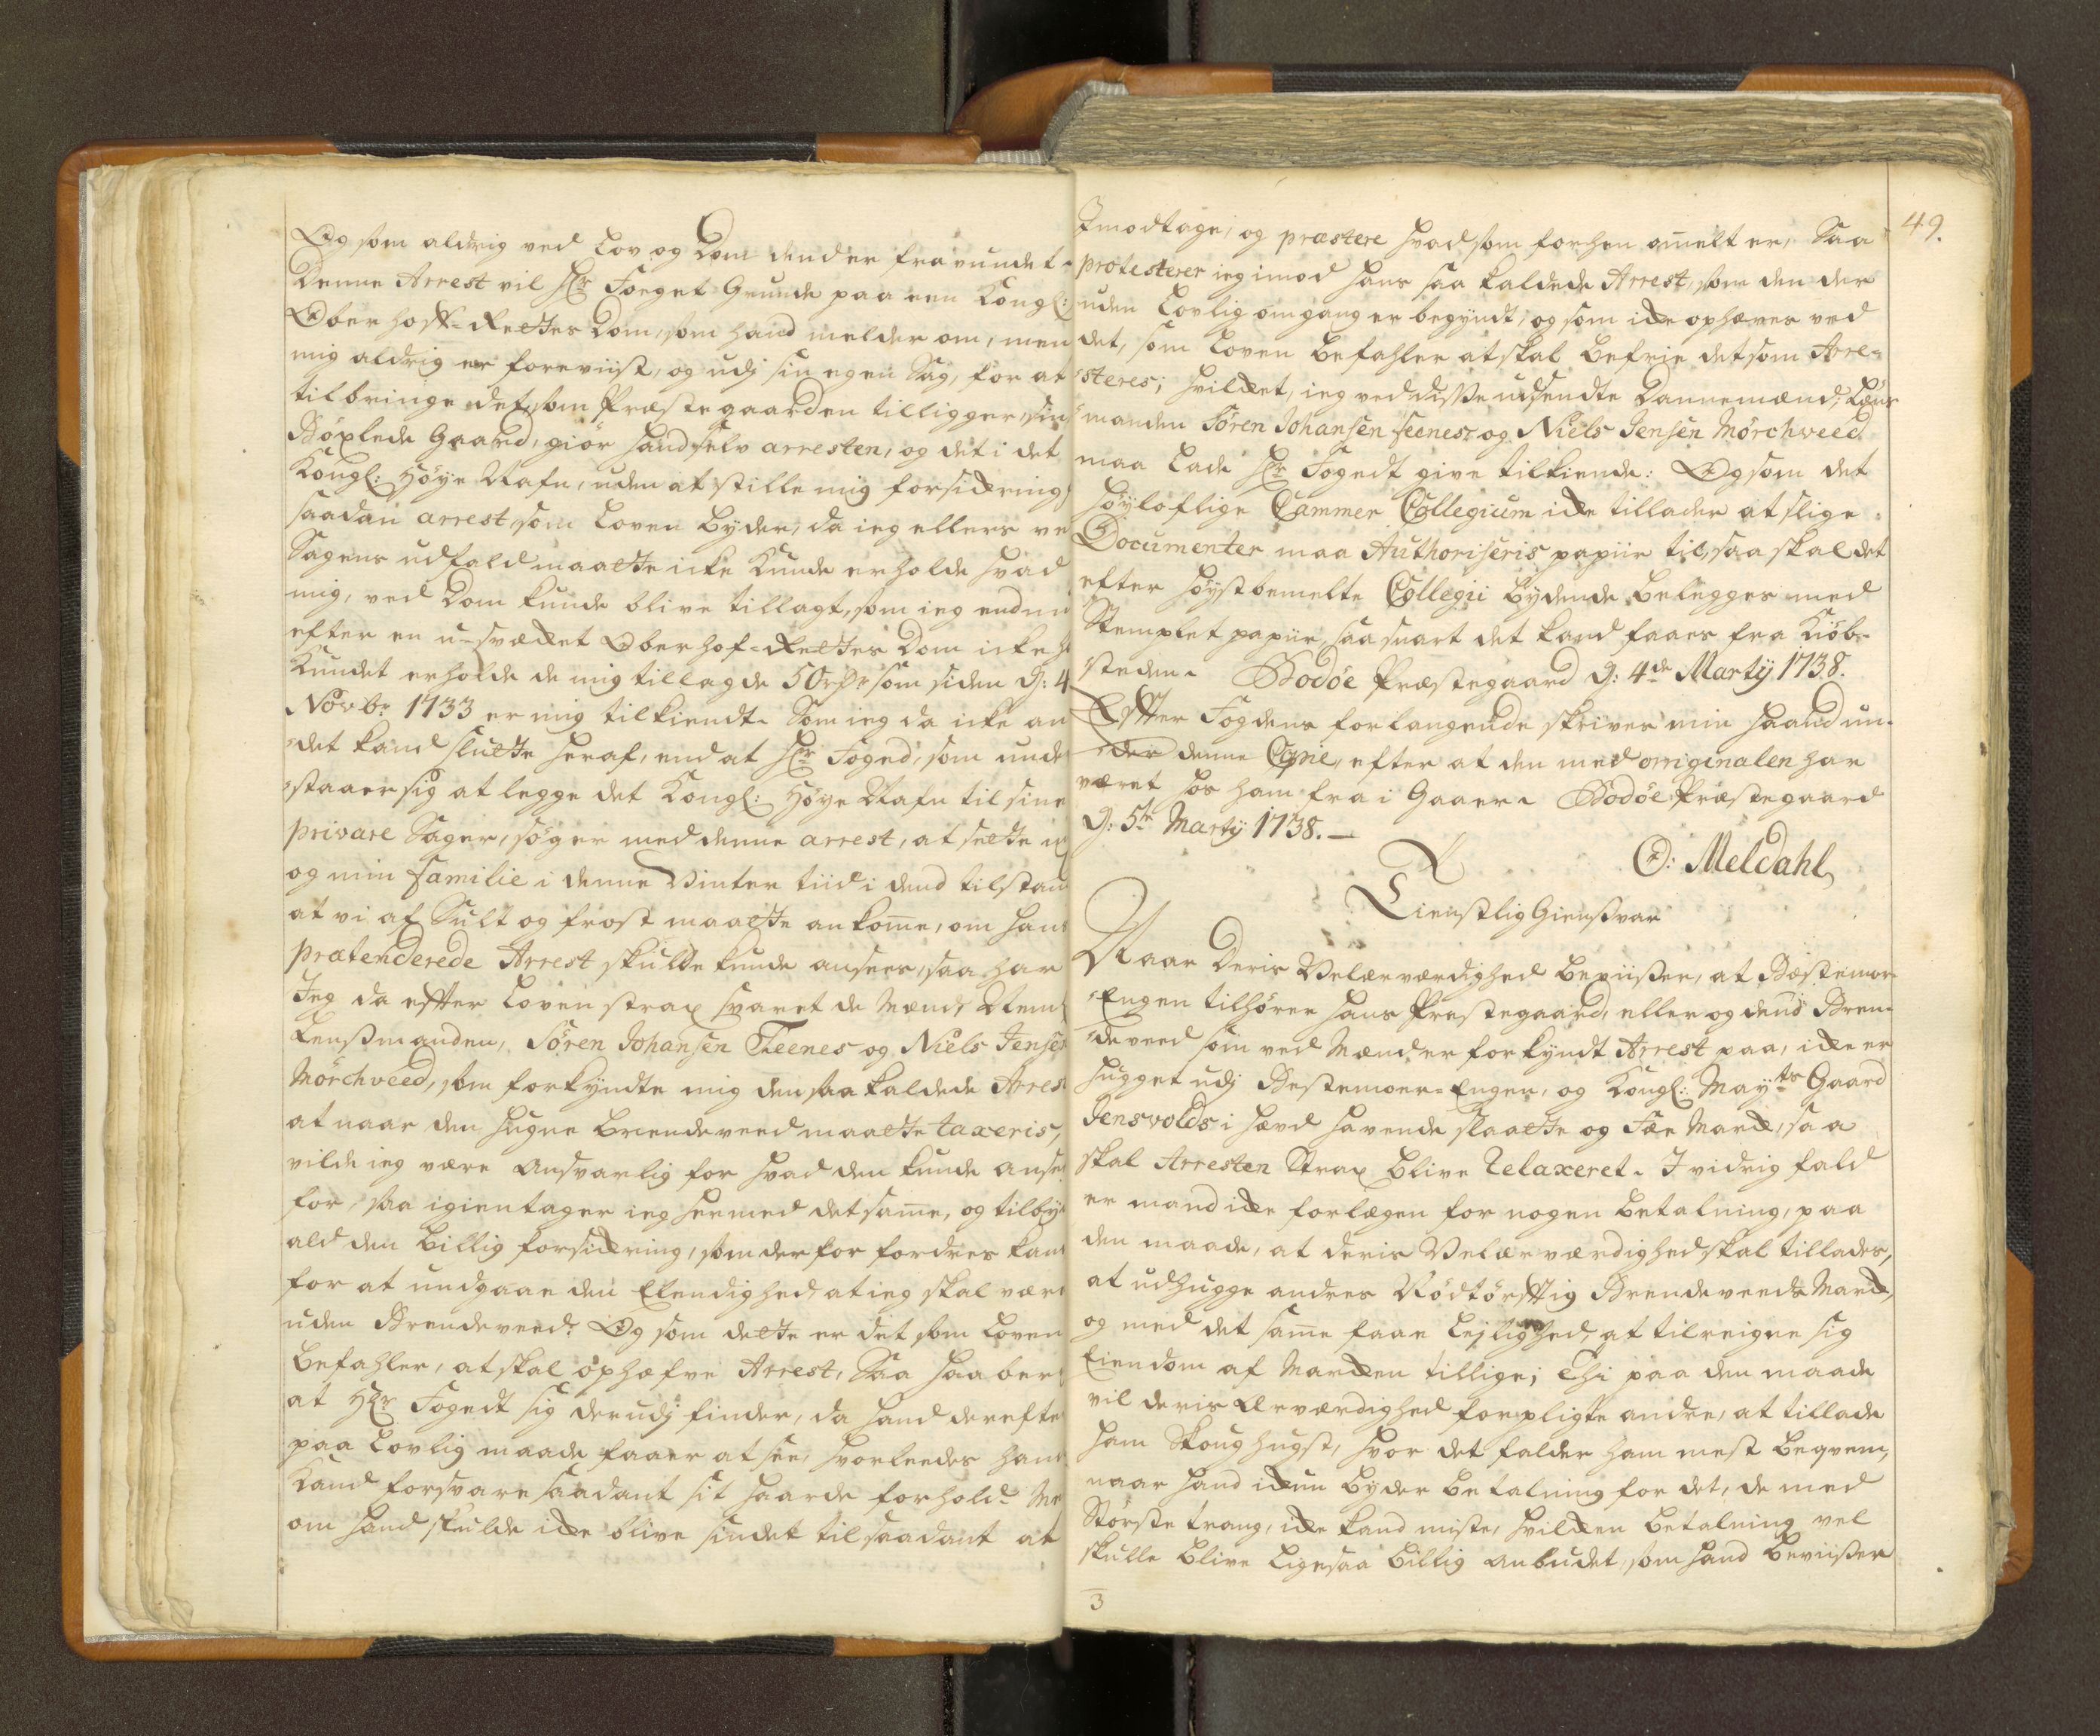 Og som aldrig ved Lov og Dom dend er fravundet
Denne Arrest vil Hr Foeget Grunde paa een Kongl:
Oberhoff-Rettes Dom, som hand melder om, men
mig aldrig er foreviist, og udj sin egen Sag, for at
tilbringe det, som Præstegaarden tilligger, sin
Böxlede Gaard, giör hand selv arresten, og det i det
Kongl: Höye Nafn, uden at stille mig forsickring
saadan arrest, som Loven byder, da ieg ellers ve
Sagens udfald maatte icke kunde erholde hvad
mig, ved Dom kunde blive tillagt, som ieg endnu
efter en u-svæcket Oberhof-Rettes Dom icke h
kundet erholde de mig tillagde 50 rdr som siden d: 4
Novbr 1733 er mig tilkiendt. Som ieg da icke an
det kand slutte heraf, end at Hr Foged, som unde
staaer sig at legge det Kongl: Höye Nafn til sine
privare Sager, söger med denne arrest, at sette m
og min familie i denne Vinter tiid i dend tilstan
at vi af Sult og frost maatte ankome, om hans
prætenderede Arrest skulde kunde ansees, saa har
Jeg da effter Loven strax svaret de Mænd, Neml
Lensmanden, Sören Johansen Feenes og Niels Jensen
Mörchveed, som forkyndte mig den saa kaldede Arrest
at naar den hugne brendeveed maatte taxeris,
vilde ieg være Ansvarlig for hvad den kunde anse
for, saa igientager ieg hermed det same, og tilby
ald den billig forsickring, som derfor fordres kand
for at undgaae den Elendighed, at ieg skal være
uden Brendeveed. Og som dette er det som Loven
befahler, at skal ophæfve Arrest, Saa haaber
at Hr Fogedt sig derudj finder, da hand derefter
paa Lovlig maade faaer at see, hvorleedes hand
kand forsvare saadant sit haarde forhold. Me
om hand skulde icke blive sindet til saadant at
49.
Imodtage, og præstere hvad som forhen omelt er, Saa
protesterer ieg imod hans saa kaldede Arrest, som den der
uden Lovlig omgang er begyndt, og som icke ophæves ved
det, som Loven befahler at skal befrie det som Arre-
steres; hvilcket, ieg ved disse udsendte Dannemænd, Læns
manden Sören Johansen feenes og Niels Jensen Mörchveed
maa lade Hr Fogedt give tilkiende: Og som det
Höyloflige Cammer Collegium icke tillader at slige
Documenter maa Authoriseris papiir til, saa skal det
efter höystbemelte Collegii bydende belegges med
Stemplet papiir, saa snart det kand faaes fra Kiöb-
steden. Bodöe Præstegaard d: 4de Marty 1738.
Effter Fogdens forlangende skrives min haand un-
der denne Copie, efter at den med originalen har
været hos ham fra i Gaaer. Bodöe Præstegaard
d: 5te Marty 1738.
O: Meldahl
Tienstlig Giensvar
Naar Deris Velærværdighed beviiser, at Bæstemor-
Engen tilhörer hans Prestegaard, eller og dend Bren-
deveed som ved Mænd er forkyndt Arrest paa, icke er
hugget udj Bestemoer-Engen, og Kongl: Mayts Gaard
Jensvolds i hævd havende slaatte og Fæe Marck, saa
skal Arresten Strax blive relaxeret. I vidrig fald
er mand icke forlegen for nogen betalning, paa
den maade, at deris Velærværdighed skal tillades,
at udhugge andres Nödtörfftig Brendeveeds Marck,
og med det same faae Lejlighed, at tilreigne sig
Eiendom af Marcken tillige; Thi paa den maade
vil deris Ærværdighed forpligte andre, at tillade
ham Skoug hugst, hvor det falder ham mest beqvem,
naar hand ickun byder betalning for det, de med
Störste trang, icke kand miste, hvilcken betalning vel
skulle blive ligesaa billig anbudet, som hand beviiser
3